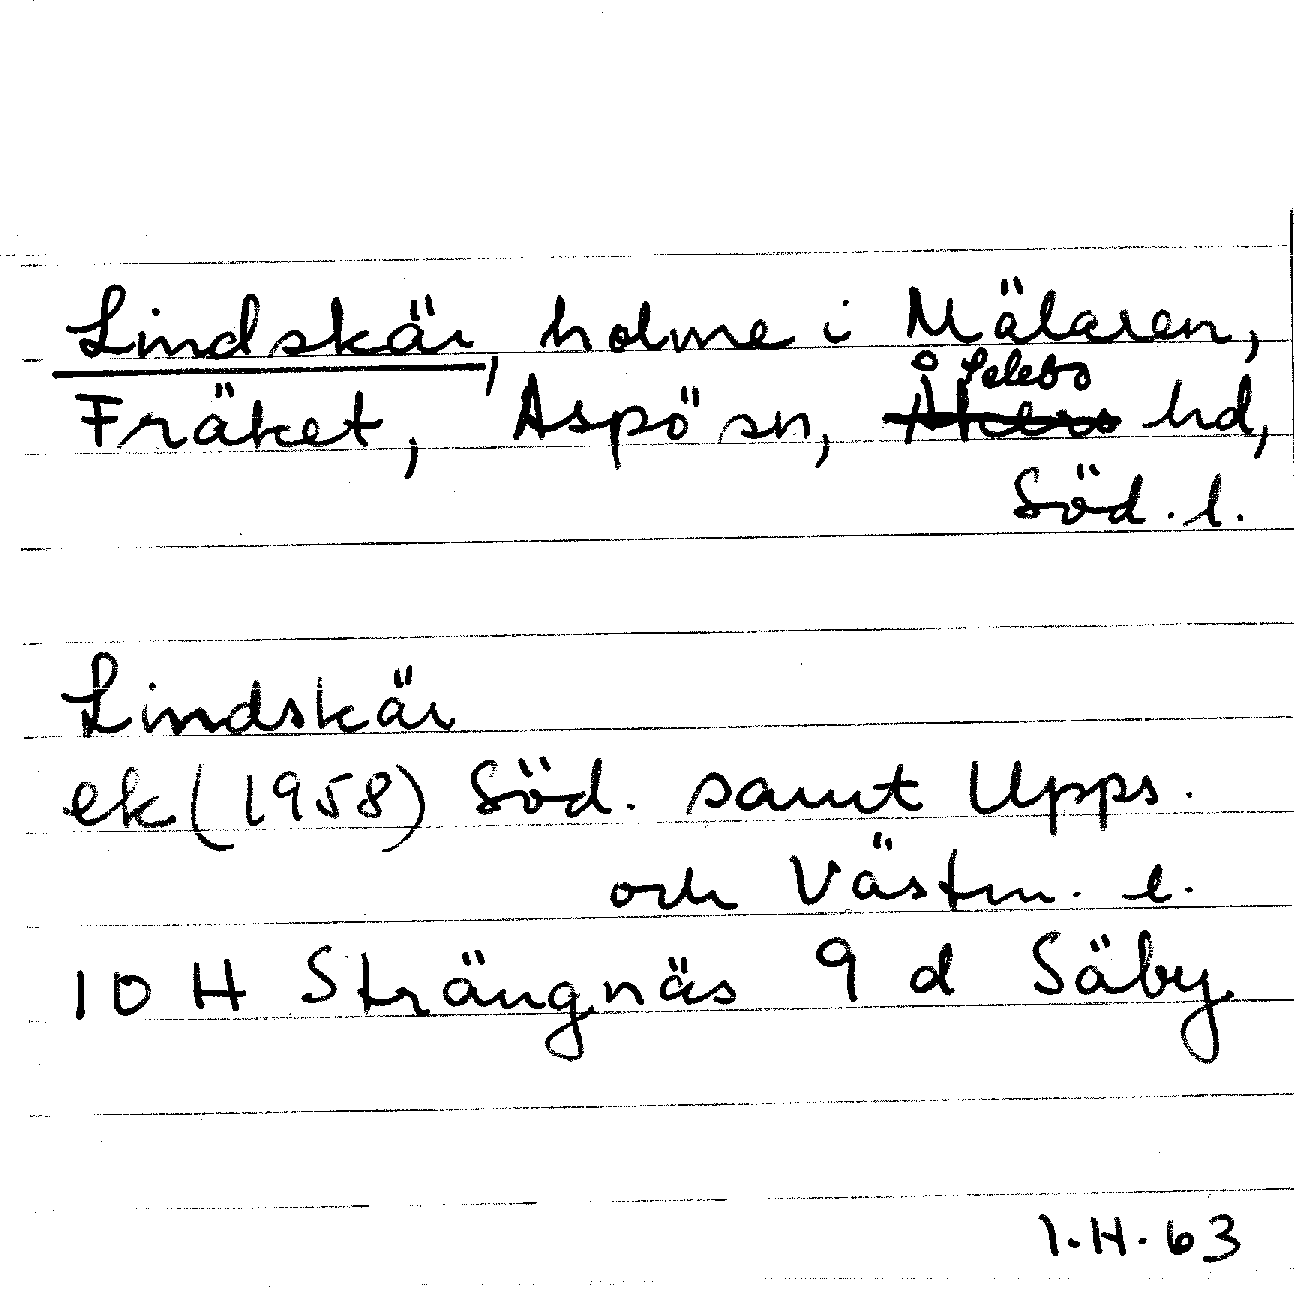 Lindskär, holme i Mälaren,
Fräket, Aspö sn, Åkers Selebo hd,
Söd. l.
Lindskär
ek (1958) Söd. samt Upps.
och Västm. l.
10 H Strängnäs 9 d Säby.
I.H. 63